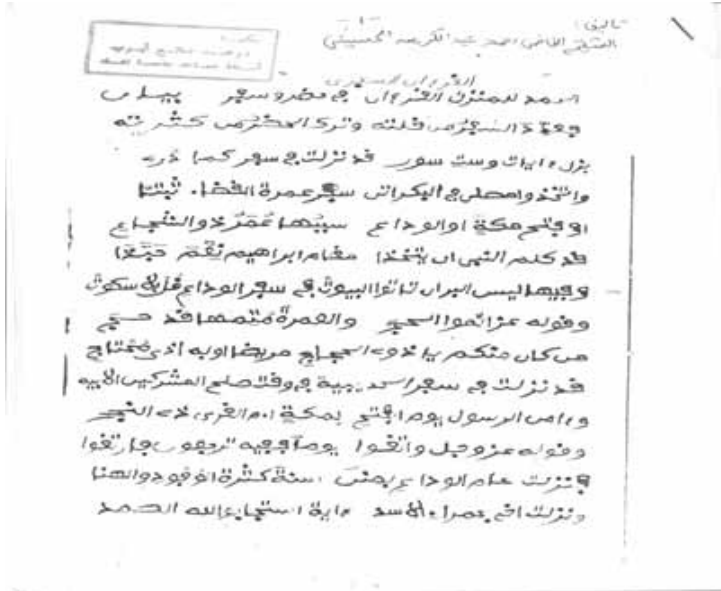 تاليف:
الفقيه القاضي احمد عبد الكريم الحسيني
القرءان السفري
الحمد للمنزل القرءان في حضر وسفر
فعدد السفر من قلته وترك الحضر من كثرته
بزل ءايات وست سور قد نزلت في سفر كما
واتخذوا مصلى في البكر اتى سفر عمرة القضاء ثبتا
او فتح مكة او الوداع سببها عمر ذو الشجاع
قد كلم النبي ان يتخذا مقام ابراهيم نعم حبذا
وفيها ليس البر ان تاتوا البيوت في سفر الوداع قل لا سكوت
وقوله عز اتموا الحج والعمرة متمها قد
من كان منكم يا ذوي الحجاج مريضا او به اذى
قد نزلت في سفر الحديبية في وقت صلح المشركين الابيه
ءامن الرسول يوم افتتح بمكة ام القرى
وقوله عز وجل واتقوا يوما فيه ترجعون فارتقوا
فنزلت عام الوداع بمنى سنة كثرة الوفود والهنا
ونزلت في حمراء الاسد ءاية استجابوا لله الصمد